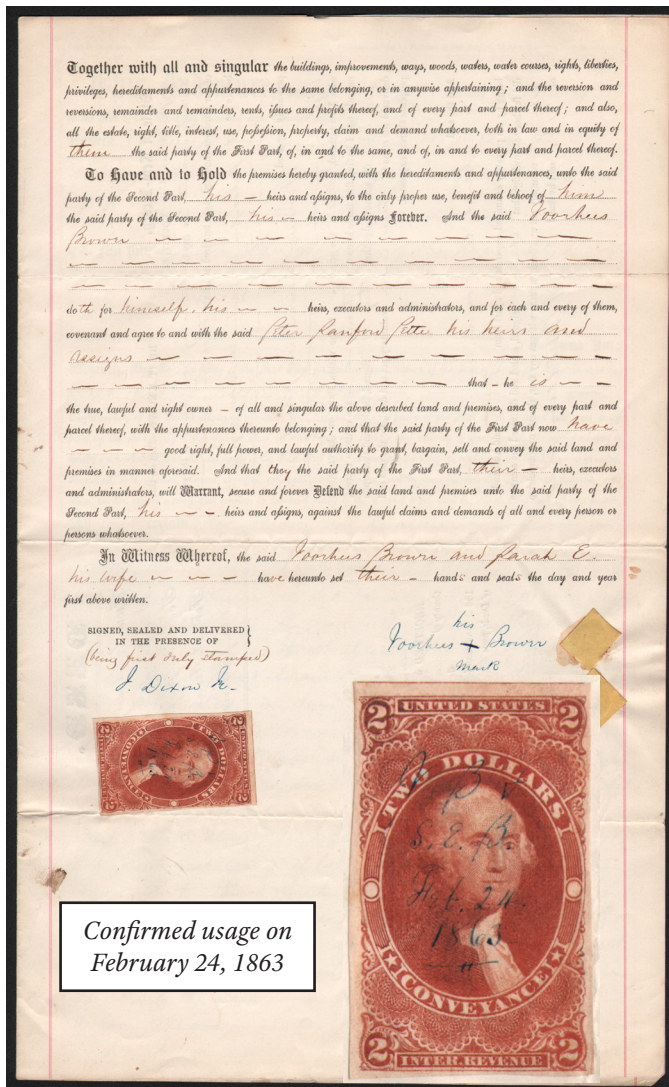 Together with all and singular the buildings, improvements, ways, woods, waters, water courses, rights, liberties,
privileges, hereditaments and appurtenances to the same belonging, or in anywise appertaining; and the reversion and
reversions, remainder and remainders, rents, issues and profits thereof, and of every part and parcel thereof; and also,
all the estate, right, title, interest, use, possession, property, claim and demand whatsoever, both in law and in equity of
them the said party of the First Part, of, in and to the same, and of, in and to every part and parcel thereof.
To Have and to Hold the premises hereby granted, with the hereditaments and appurtenances, unto the said
party of the Second Part, his – heirs and assigns, to the only proper use, benefit and behoof of him
the said party of the Second Part, his – heirs and assigns Forever. And the said Voorhees
Brown
doth for himself, his – – heirs, executors and administrators, and for each and every of them,
covenant and agree to and with the said Peter Sanford his heirs and
assigns
that – he is – –
the true, lawful and right owner – of all and singular the above described land and premises, and of every part and
parcel thereof, with the appurtenances thereunto belonging; and that the said party of the First Part now have
– – – good right, full power, and lawful authority to grant, bargain, sell and convey the said land and
premises in manner aforesaid. And that they the said party of the First Part, their – heirs, executors
and administrators, will Warrant, secure and forever Defend the said land and premises unto the said party of the
Second Part, his – – heirs and assigns, against the lawful claims and demands of all and every person or
persons whatsoever.
In Witness Whereof, the said Voorhees Brown and Sarah E.
his wife – – – have hereunto set their – hands and seals the day and year
first above written.
SIGNED, SEALED AND DELIVERED
IN THE PRESENCE OF
(being first duly stamped)
J. Dixon Jr.
his
Voorhees + Brown
mark
2 UNITED STATES 2
TWO DOLLARS
V. B.
S. E. B.
Feb. 24
1863
CONVEYANCE
2 INTER. REVENUE 2
TWO DOLLARS
CONVEYANCE
Confirmed usage on
February 24, 1863